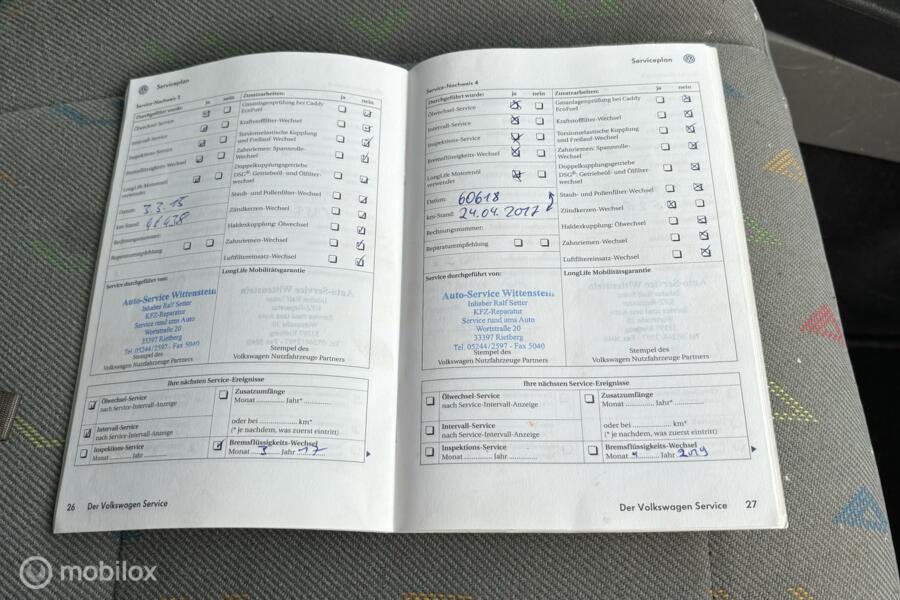 Serviceplan
Service-Nachweis 3
Durchgeführt wurde: ja nein
Ölwechsel-Service
Intervall-Service
Inspektions-Service
Bremsflüssigkeits-Wechsel
LongLife Motorenöl
verwendet
Datum: 3.3.15
km-Stand: 41438
Rechnungsnummer:
Reparaturempfehlung
Zusatzarbeiten: ja nein
Gasanlagenprüfung bei Caddy
EcoFuel
Kraftstofffilter-Wechsel
Torsionselastische Kupplung
und Freilauf-Wechsel
Zahnriemen: Spannrolle-
Wechsel
Doppelkupplungsgetriebe
DSG®: Getriebeöl- und Ölfilter-
wechsel
Staub- und Pollenfilter-Wechsel
Zündkerzen-Wechsel
Haldexkupplung: Ölwechsel
Zahnriemen-Wechsel
Luftfiltereinsatz-Wechsel
Service durchgeführt von:
Auto-Service Wittenstein
Inhaber Ralf Setter
KFZ-Reparatur
Service rund ums Auto
Wortstraße 20
33397 Rietberg
Tel. 05244/2597 - Fax 5040
Stempel des
Volkswagen Nutzfahrzeuge Partners
LongLife Mobilitätsgarantie
Stempel des
Volkswagen Nutzfahrzeuge Partners
Ihre nächsten Service-Ereignisse
Ölwechsel-Service
nach Service-Intervall-Anzeige
Intervall-Service
nach Service-Intervall-Anzeige
Inspektions-Service
Monat ............ Jahr ............
Zusatzumfänge
Monat ............ Jahr* ............
oder bei ............ km*
(* je nachdem, was zuerst eintritt)
Bremsflüssigkeits-Wechsel
Monat 3 Jahr 17
26 Der Volkswagen Service
Serviceplan
Service-Nachweis 4
Durchgeführt wurde: ja nein
Ölwechsel-Service
Intervall-Service
Inspektions-Service
Bremsflüssigkeits-Wechsel
LongLife Motorenöl
verwendet
Datum: 60618
km-Stand: 24.04.2017
Rechnungsnummer:
Reparaturempfehlung
Zusatzarbeiten: ja nein
Gasanlagenprüfung bei Caddy
EcoFuel
Kraftstofffilter-Wechsel
Torsionselastische Kupplung
und Freilauf-Wechsel
Zahnriemen: Spannrolle-
Wechsel
Doppelkupplungsgetriebe
DSG®: Getriebeöl- und Ölfilter-
wechsel
Staub- und Pollenfilter-Wechsel
Zündkerzen-Wechsel
Haldexkupplung: Ölwechsel
Zahnriemen-Wechsel
Luftfiltereinsatz-Wechsel
Service durchgeführt von:
Auto-Service Wittenstein
Inhaber Ralf Setter
KFZ-Reparatur
Service rund ums Auto
Wortstraße 20
33397 Rietberg
Tel. 05244/2597 - Fax 5040
Stempel des
Volkswagen Nutzfahrzeuge Partners
LongLife Mobilitätsgarantie
Stempel des
Volkswagen Nutzfahrzeuge Partners
Ihre nächsten Service-Ereignisse
Ölwechsel-Service
nach Service-Intervall-Anzeige
Intervall-Service
nach Service-Intervall-Anzeige
Inspektions-Service
Monat ............ Jahr ............
Zusatzumfänge
Monat ............ Jahr* ............
oder bei ............ km*
(* je nachdem, was zuerst eintritt)
Bremsflüssigkeits-Wechsel
Monat 4 Jahr 2019
Der Volkswagen Service 27
mobilox